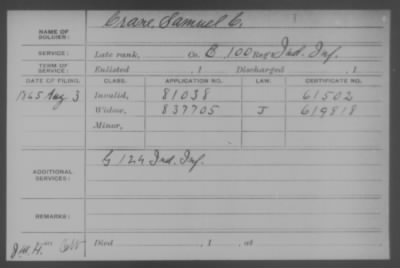 NAME OF SOLDIER: Crane, Samuel C.
SERVICE: Late rank, Co. B 100 Reg't Ind. Inf.
TERM OF SERVICE: Enlisted , 1 Discharged , 1
DATE OF FILING. CLASS. APPLICATION NO. LAW. CERTIFICATE NO.
1865 Aug 3 Invalid, 81038 61502
Widow, 837705 J 619818
Minor,
ADDITIONAL SERVICES: G 124 Ind. Inf.
REMARKS:
Died , 1 , at